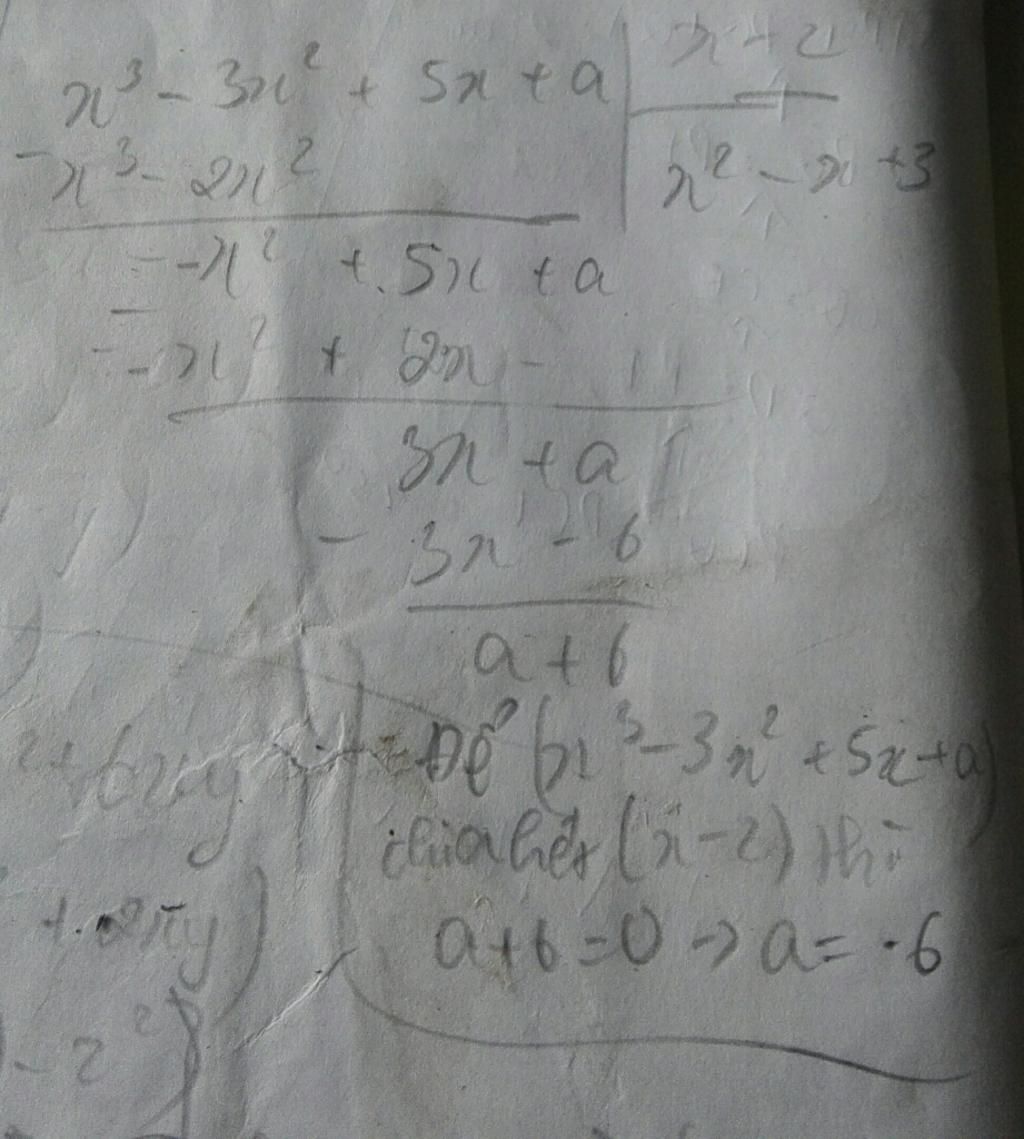 x³ - 3x² + 5x + a | x - 2
- x³ - 2x² | x² - x + 3
- x² + 5x + a
- - x² + 2x
3x + a
- 3x - 6
a + 6
Để (x³ - 3x² + 5x + a)
chia hết (x - 2) thì
a + 6 = 0 -> a = -6
² + 6xy
+ 2xy)
- z²)